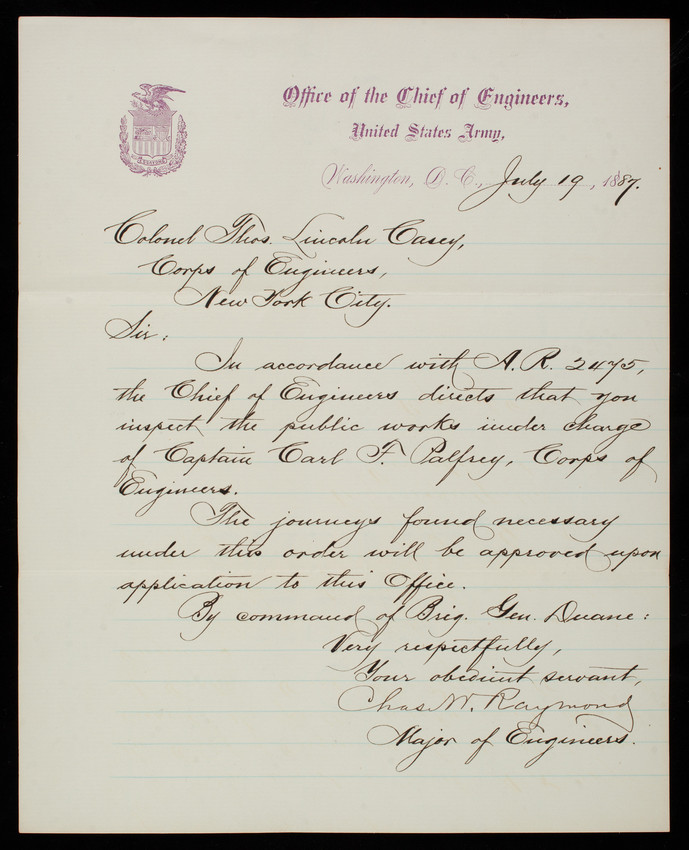 Office of the Chief of Engineers,
United States Army,
Washington, D. C., July 19, 1887.
Colonel Thos. Lincoln Casey,
Corps of Engineers,
New York City.
Sir:
In accordance with A. R. 2475,
the Chief of Engineers directs that you
inspect the public works under charge
of Captain Carl F. Palfrey, Corps of
Engineers.
The journeys found necessary
under this order will be approved upon
application to this Office.
By command of Brig. Gen. Duane:
Very respectfully,
Your obedient servant,
Chas. W. Raymond
Major of Engineers.